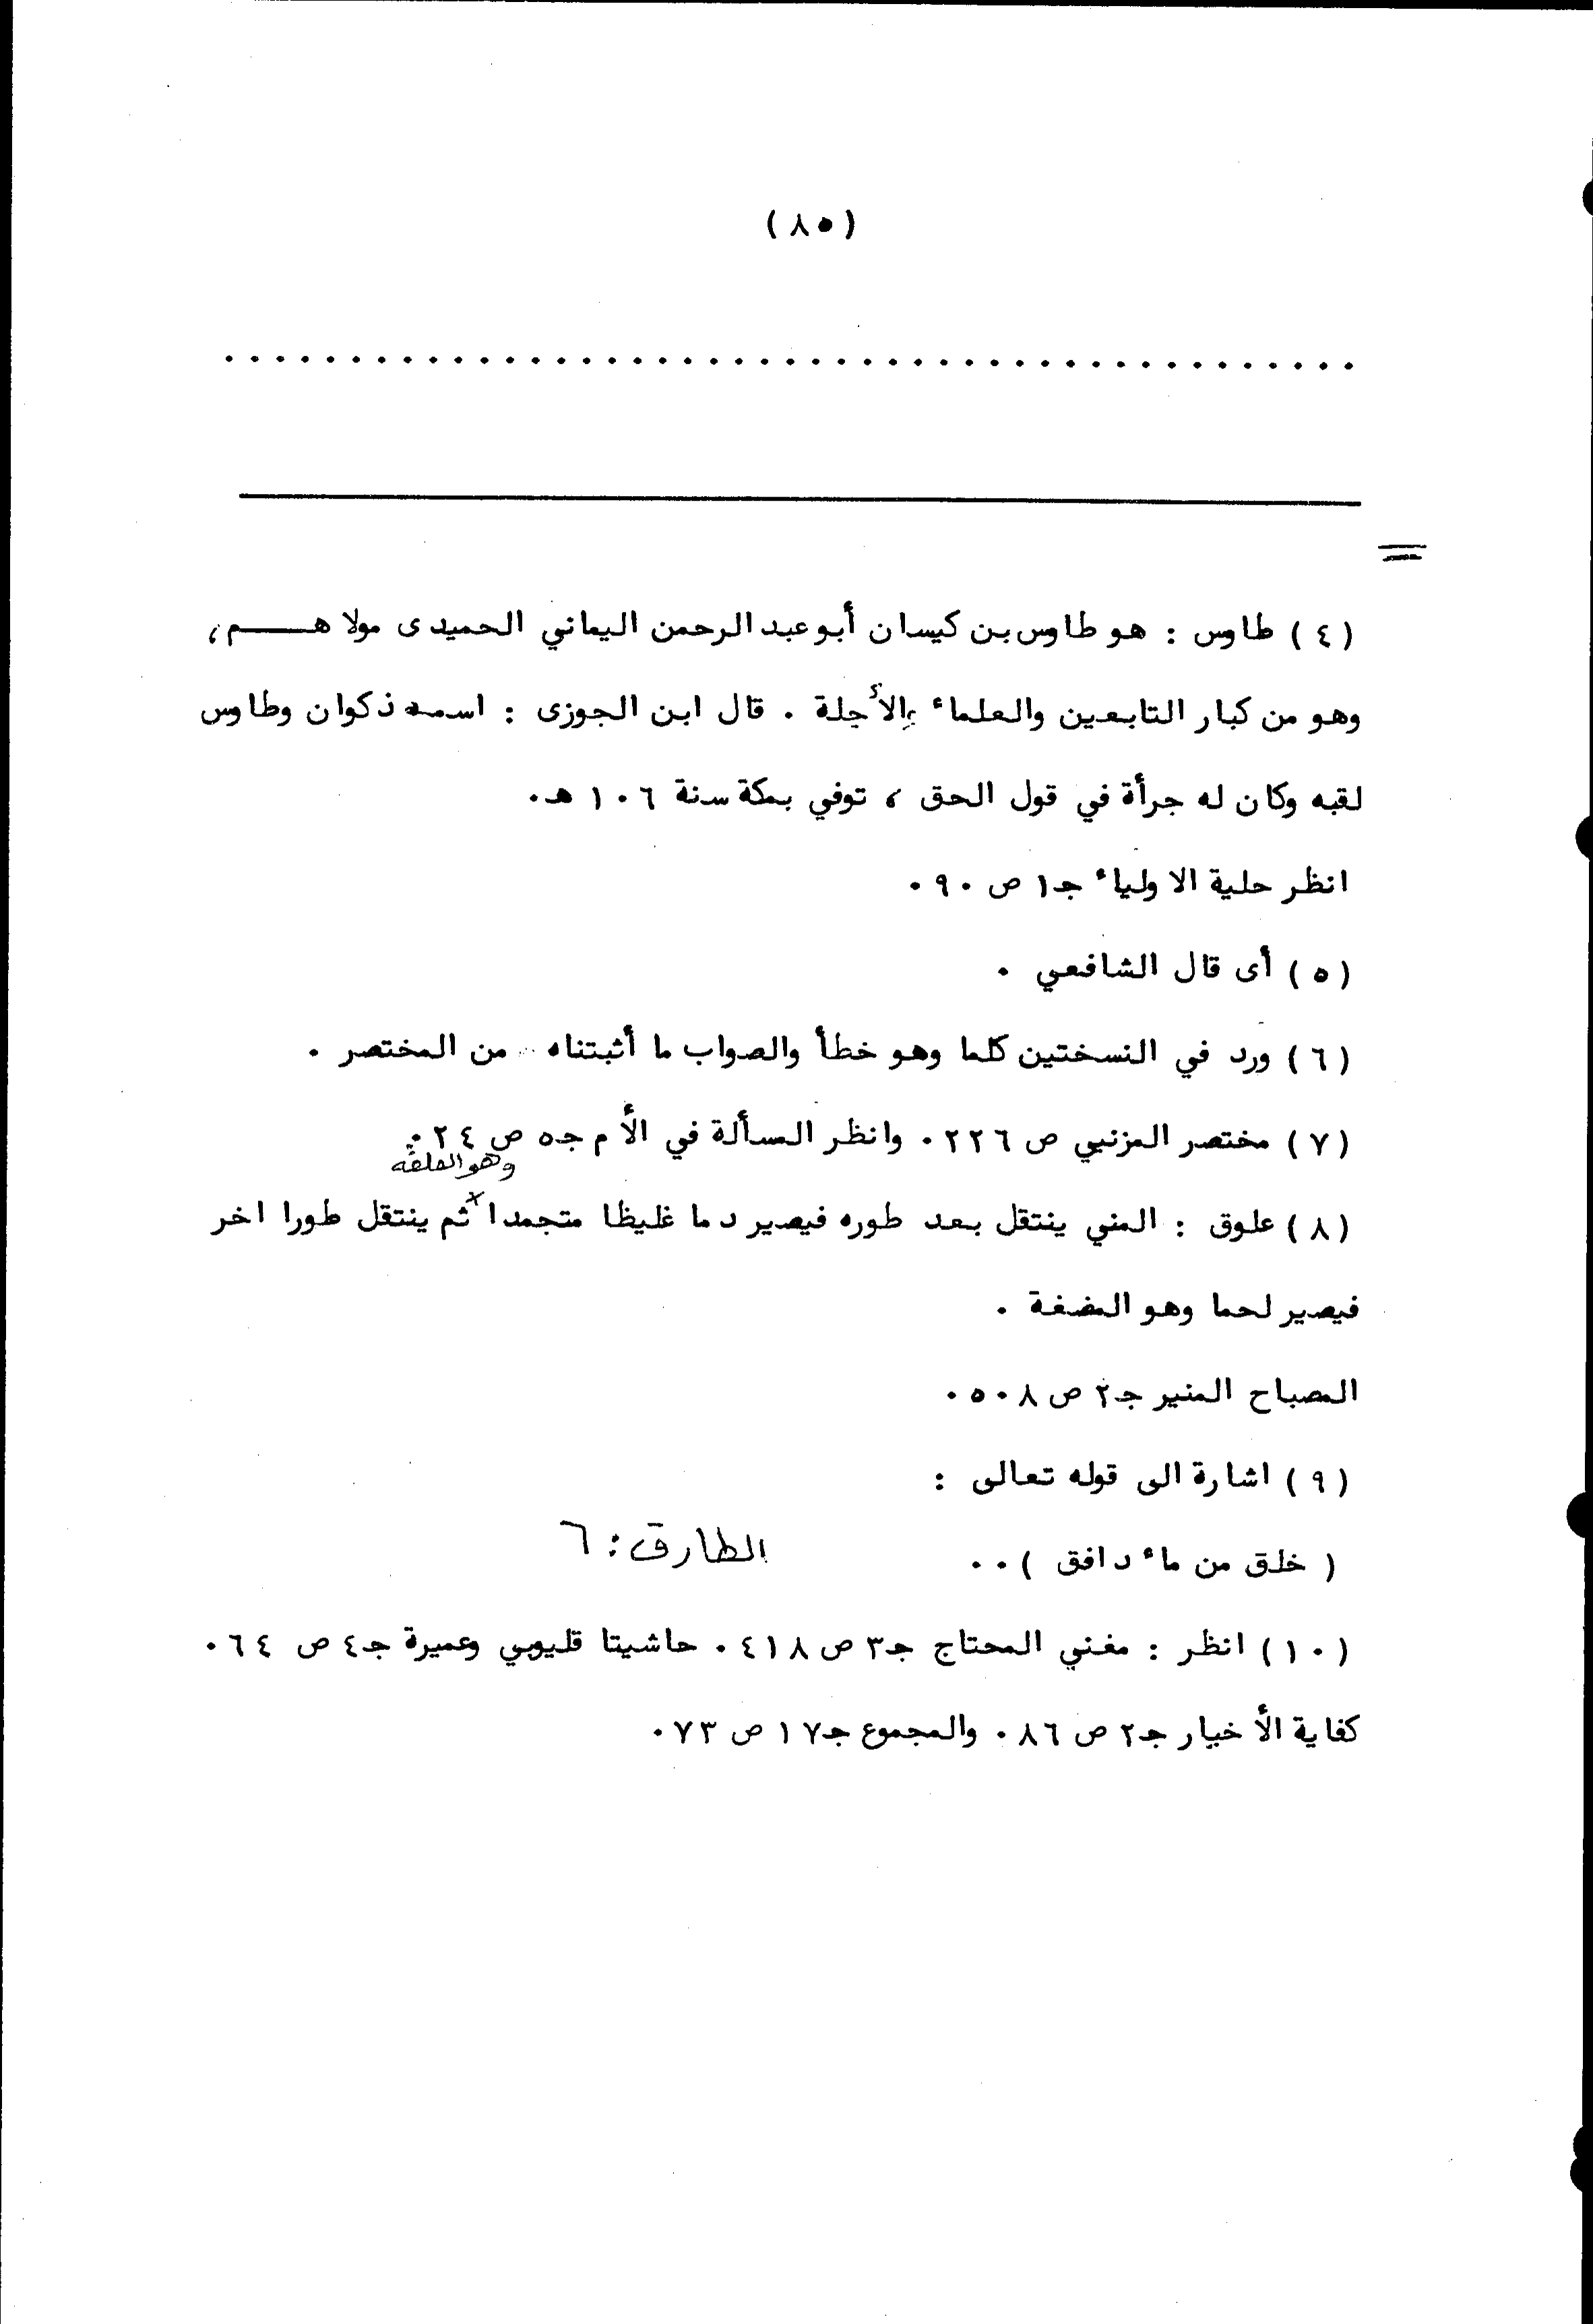 (٨٥)
. . . . . . . . . . . . . . . . . . . . . . . . . . . . . . . . . . . . . . . . . . . .
=
(٤) طاوس : هو طاوس بن كيسان أبو عبد الرحمن اليماني الحميدى مولاهـــــم،
وهو من كبار التابعين والعلماء الأجلة . قال ابن الجوزى : اسمه ذكوان وطاوس
لقبه وكان له جرأة في قول الحق ، توفي بمكة سنة ١٠٦ هـ.
انظر حلية الاولياء جـ١ ص ٩٠.
(٥) أى قال الشافعي .
(٦) ورد في النسختين كلما وهو خطأ والصواب ما أثبتناه من المختصر .
(٧) مختصر المزنيي ص ٢٢٦. وانظر المسألة في الأم جـ٥ ص ٢٤.
وهو العلقه
(٨) علوق : المني ينتقل بعد طوره فيصير دما غليظا متجمدا ثم ينتقل طورا اخر
فيصير لحما وهو المضغة .
المصباح المنير جـ٢ ص ٥٠٨.
(٩) اشارة الى قوله تعالى :
( خلق من ماء دافق ) . . الطارق : ٦
(١٠) انظر : مغني المحتاج جـ٣ ص ٤١٨. حاشيتا قليوبي وعميرة جـ٤ ص ٦٤.
كفاية الأخيار جـ٢ ص ٨٦. والمجموع جـ١٧ ص ٧٣.